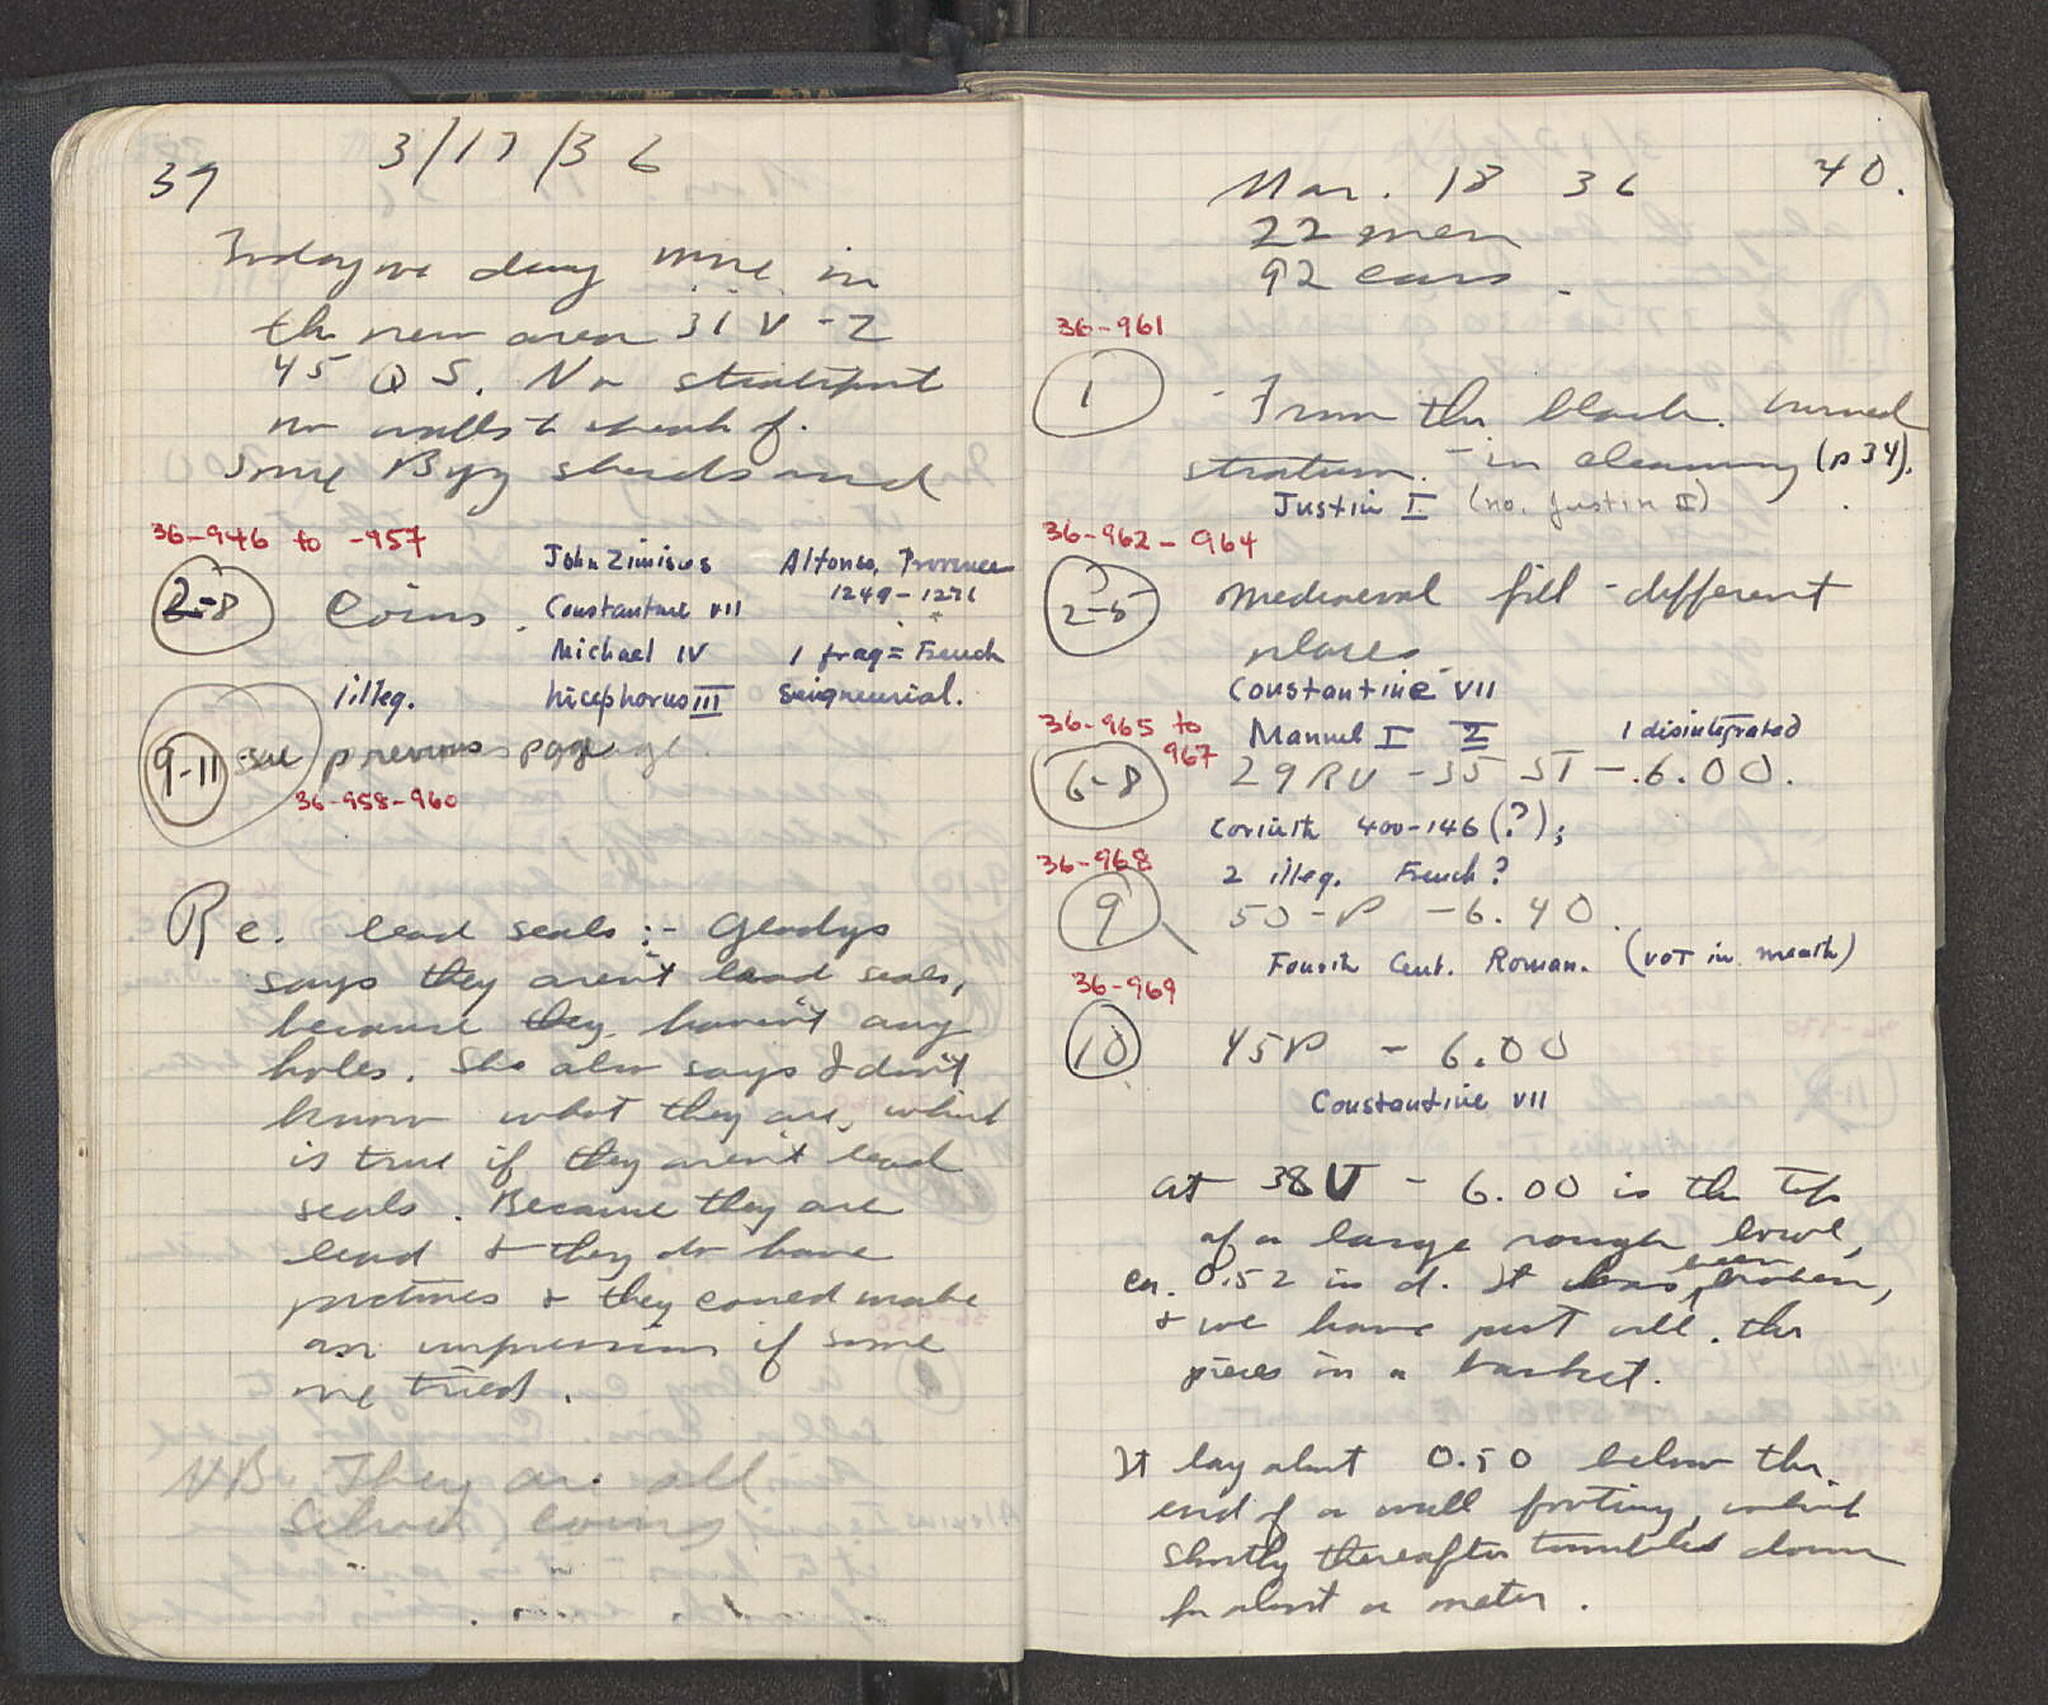 39
3/17/36
Today we dug more in
the new area 31 V - Z
45 Q S. No
no walls to speak of.
Some Byz sherds and
36-946 to -957
2-8 coins.
John Zimisces
Constantine VII
Michael IV
Nicephorus III
Alfonso, Provence
1249-1271
1 frag = French
Seigneurial.
1 illeg.
9-11 see previous page
36-958-960
Re. lead seals :- Gladys
says they aren't lead seals,
because they haven't any
holes. She also says I don't
know what they are, which
is true if they aren't lead
seals. Because they are
lead & they do have
pictures & they could make
an impression if some
one tried.
NB. They are all
silver coins
40.
Mar. 18 36
22 men
92 cars.
36-961
1 - From the black burned
stratum. - in cleaning (p 34).
Justin I (no. Justin II)
36-962-964
2-5 Mediaeval fill - different
places
Constantine VII
Manuel I 2 1 disintegrated
36-965 to
967
6-8 29 RU - 35 ST - 6.00.
Corinth 400-146 (?);
2 illeg. French?
36-968
9 50-P - 6.40
Fourth Cent. Roman. (not in month)
36-969
10 45P - 6.00
Constantine VII
at 38 U - 6.00 is the top
of a large rough bowl,
ca. 0.52 in d. It has been broken,
& we have put all the
pieces in a basket.
It lay about 0.50 below the
end of a wall footing, which
shortly thereafter tumbled down
for about a meter.